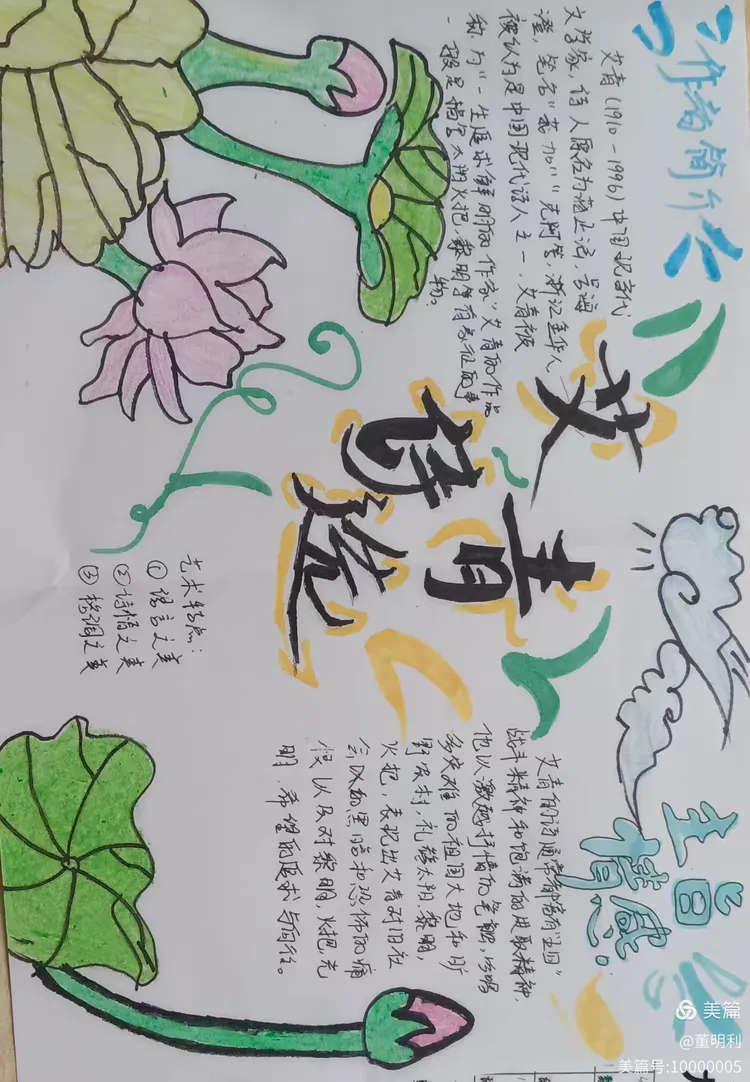 作者简介
艾青(1910-1996)中国现当代
文学家,诗人原名为蒋正涵,号海
澄,笔名"莪加""克阿"等,浙江金华人
被认为是中国现代诗人之一,艾青被
称为"一生追求鲜明的作家"艾青的作品
一般是描写太阳火把,黎明等有象征的事
物.
艾青
诗绘
艺术特点:
①语言之美
②诗情之美
③格调之美
主旨
情感.
艾青的诗通常都富有生回"
战斗精神和饱满的进取精神.
他以激越抒情的笔触,吟唱
多灾难的祖国大地和旷
野农村,礼赞太阳.黎明,
火把,表现出艾青对旧社
会以的黑暗和恐怖的痛
恨以及对黎明,火把,光
明.希望的追求与向往。
美篇
@董明利
美篇号:10000005